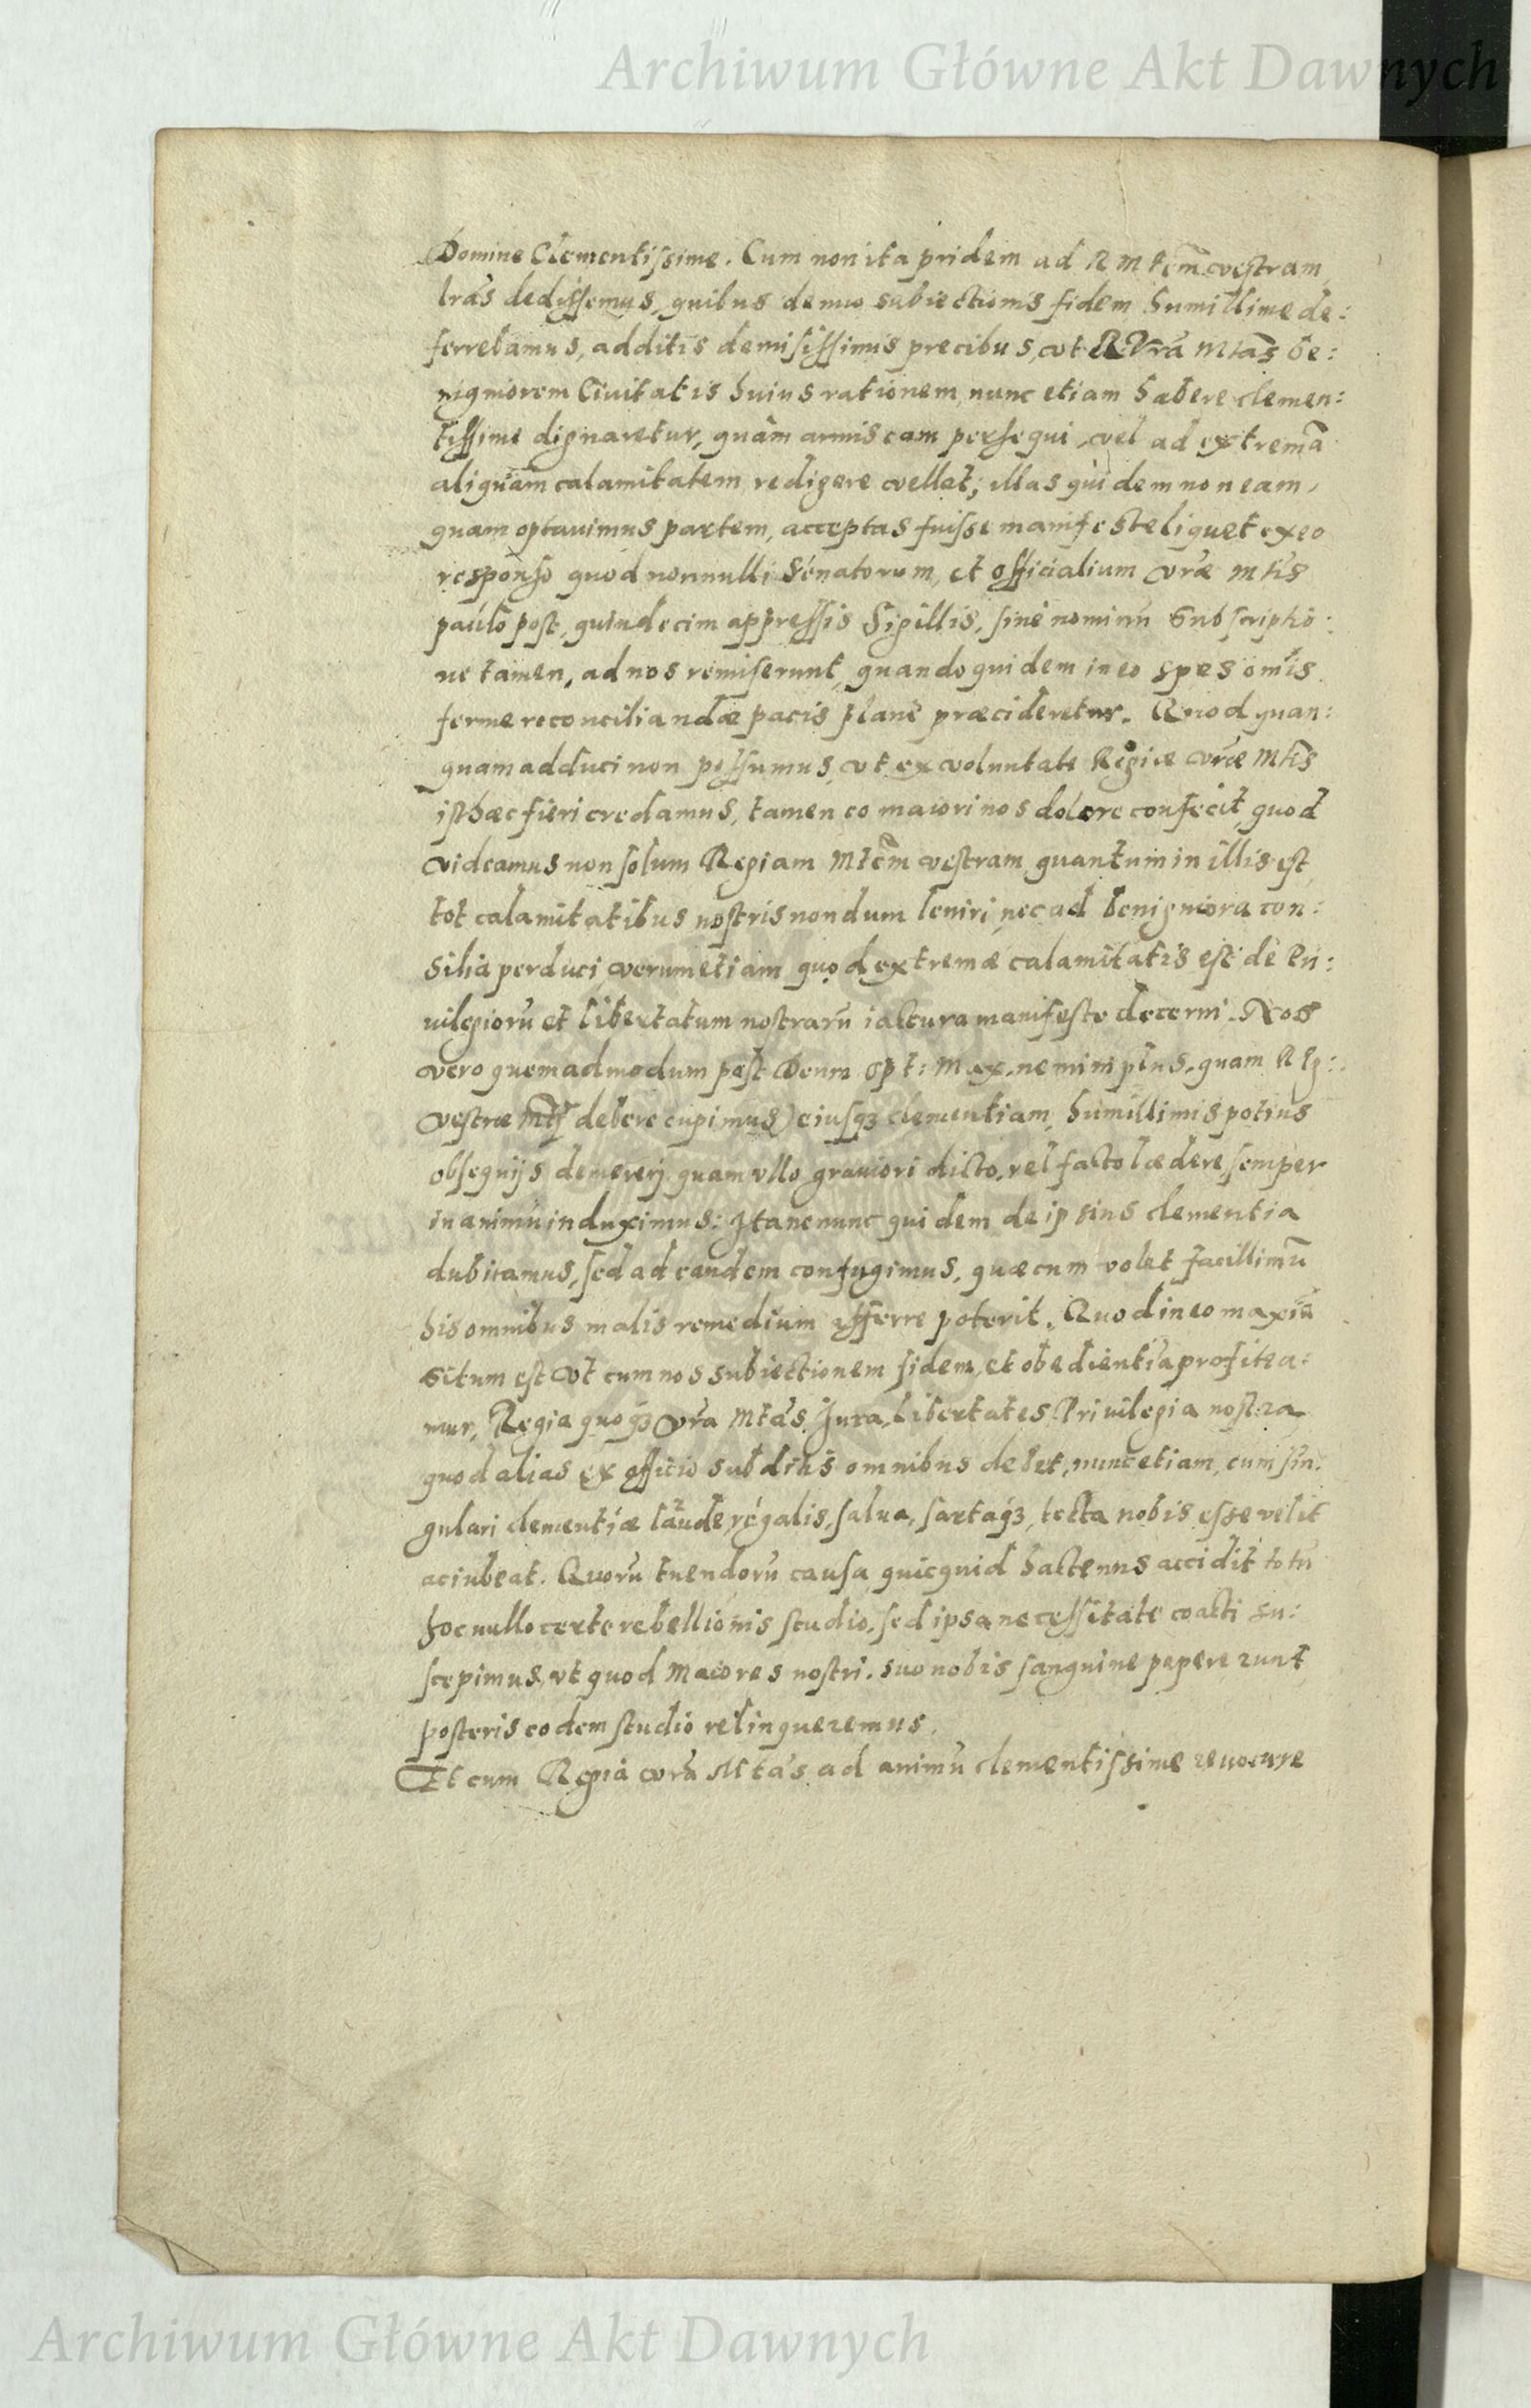 Archiwum Główne Akt Dawnych
Domine Clementissime. Cum non ita pridem ad R Mtem vestram
lrãs dedissemus, quibus denuo subiectionis fidem humillime de:
ferrebamus, additis demisissimis precibus, ut R Vrã Mtas be:
nigniorem Civitatis huius rationem, nunc etiam habere clemen:
tissime dignaretur, quàm armis eam persequi, vel ad extremã
aliquam calamitatem redigere vellet; illas quidem non eam,
quam optavimus partem, acceptas fuisse manifeste liquet ex eo
responso quod nonnulli Senatorum, et officialium vræ Mtis
paulo post, quindecim appressis Sigillis, sine nominũ Subscriptio:
ne tamen, ad nos remiserunt, quandoquidem in eo spes om̃is
ferme reconciliandæ pacis planè præcideretur. Quod quan:
quam adduci non possumus, ut ex voluntate Regiæ vræ Mtis
isthæc fieri credamus, tamen eo maiori nos dolore confecit, quod
videamus non solum Regiam Mtem vestram, quantum in illis est,
tot calamitatibus nostris nondum leniri, nec ad benigniora con:
silia perduci, verumetiam quod extremæ calamitatis est de Pri:
uilegiorũ et libertatum nostrarũ iactura manifeste decerni. Nos
vero quemadmodum post Deum Opt: Max. nemini plus, quam Rg:
vestræ Mtj debere cupimus) eiusq3 clementiam, humillimis potius
obsequijs demererj quam vllo grauiori dicto, vel facto lædere semper
in animũ induximus: Ita ne nunc quidem de ipsius clementia
dubitamus, sed ad eandem confugimus, quæ cum volet facillimũ
his omnibus malis remedium afferre poterit. Quod in eo maximã
situm est vt cum nos subiectionem fidem, et obedientiã profitea:
mur, Regia quoq3 vrã Mtas, Jura, Libertates Priuilegia nostra
quod alias ex officio subditis omnibus debet, nunc etiam, cum sin:
gulari clementiæ laude, regalis, salua, sartaq3, tecta nobis esse velit
ac iubeat. Quorũ tuendorũ causa quicquid hactenus accidit totũ
hoc nullo certe rebellionis studio, sed ipsa necessitate coacti su:
scepimus, vt quod Maiores nostri. suo nobis sanguine pepererunt
posteris eodem studio relinqueremus.
Et cum Regia vrã Mtas ad animũ clementissime reuocare
Archiwum Główne Akt Dawnych